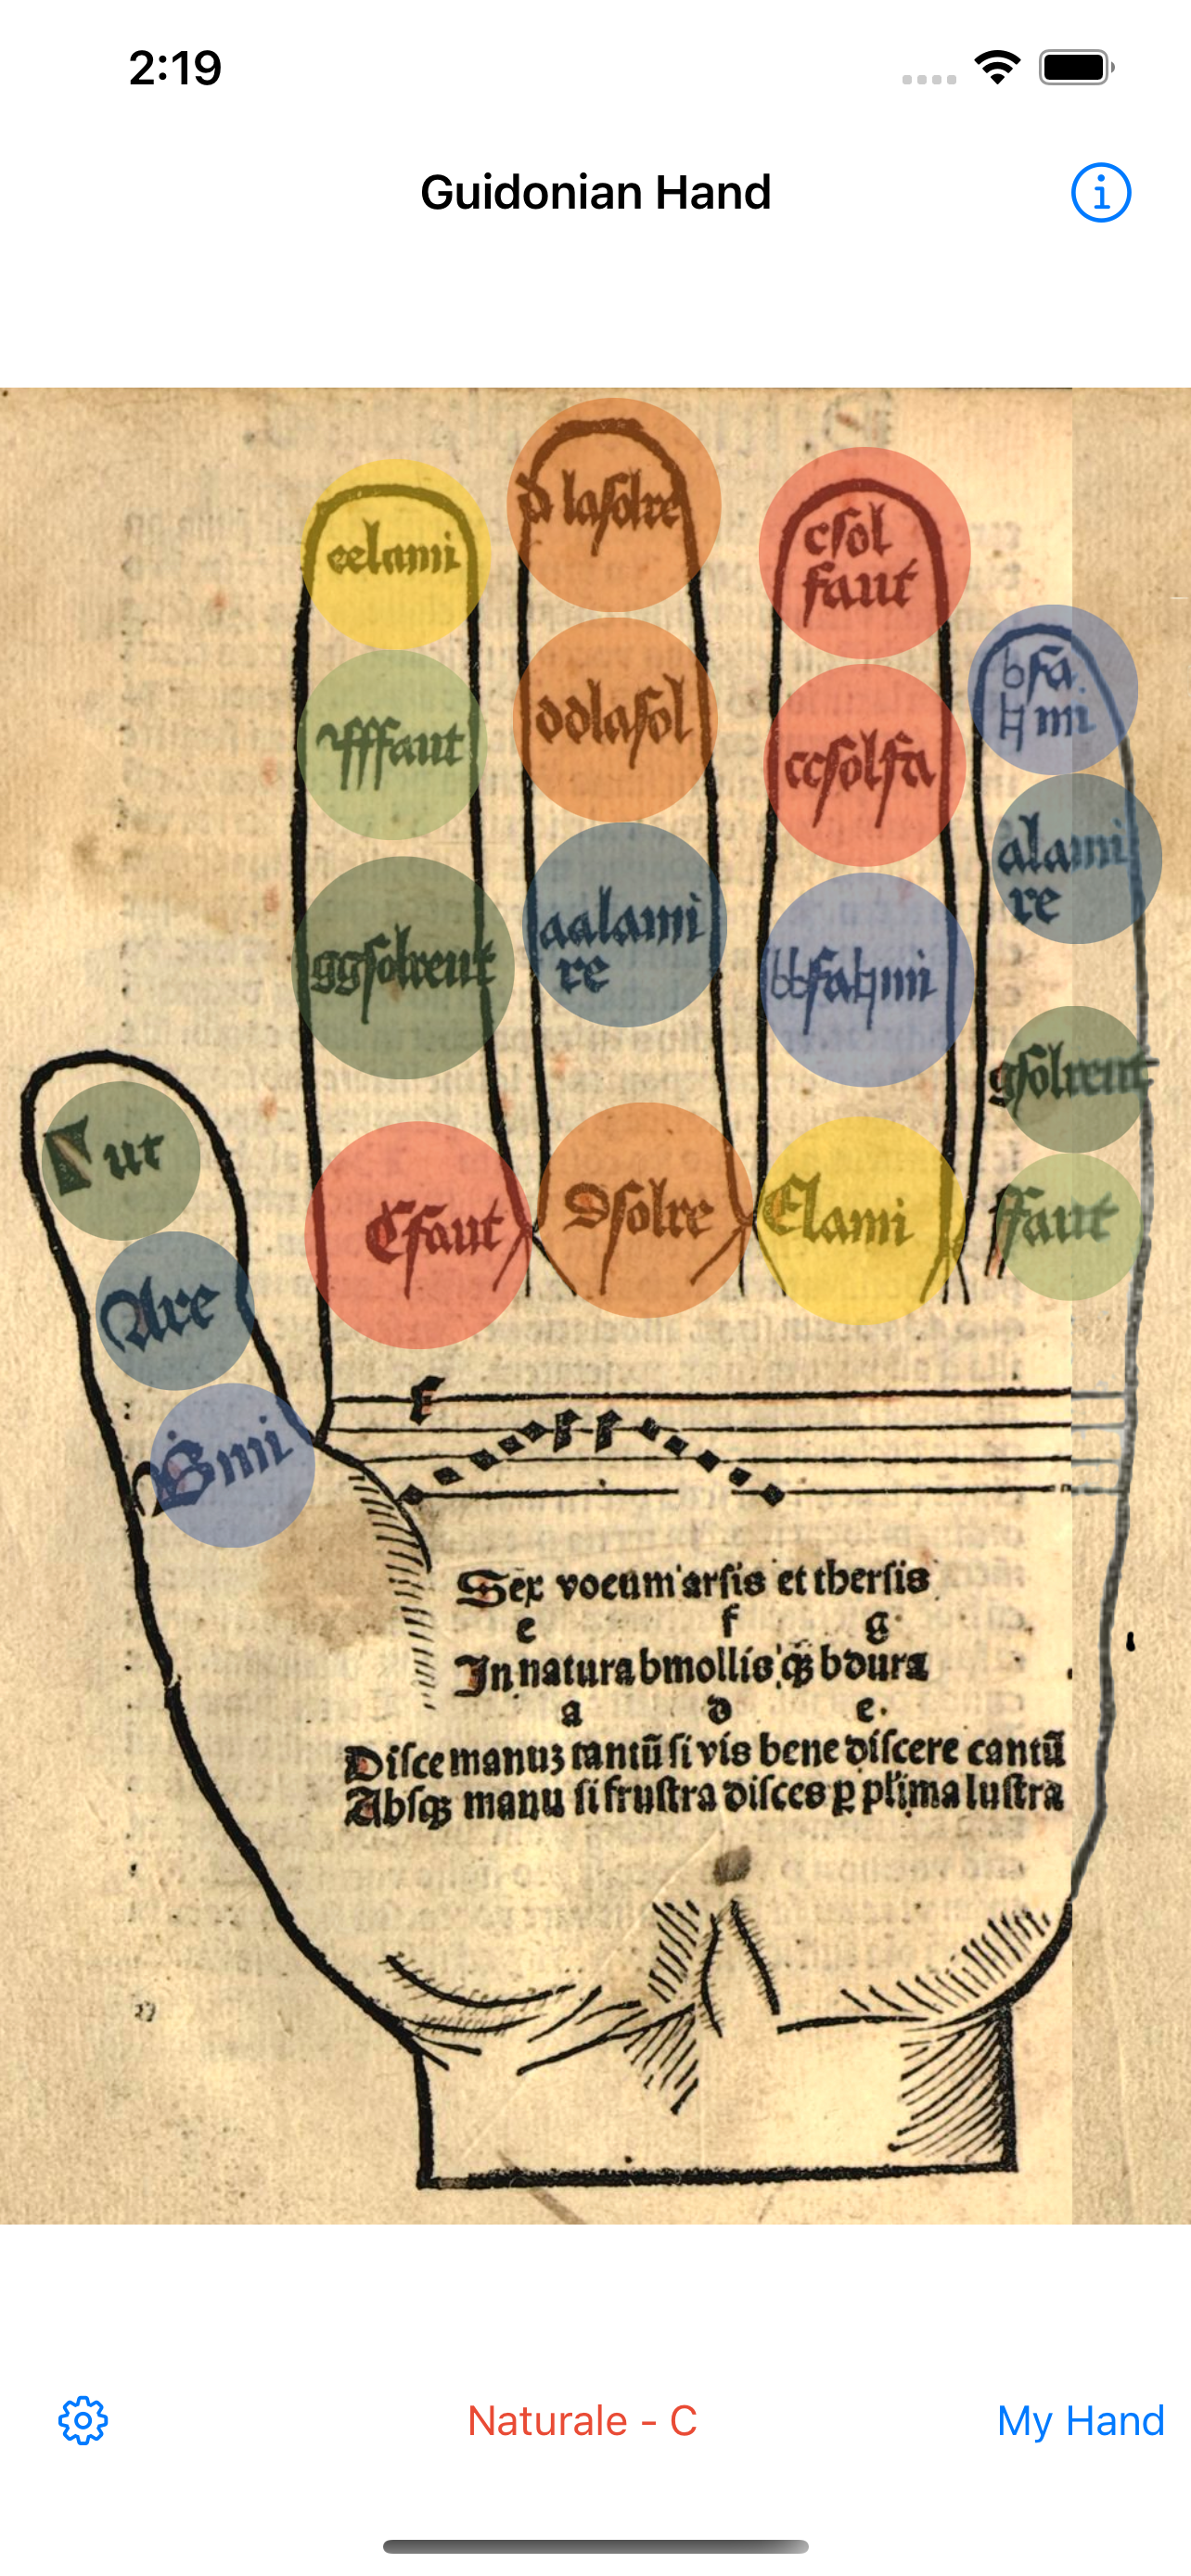 2:19
Guidonian Hand
d lasolre
eelami
csol
faut
bfa
♮mi
fffaut
ddlasol
ccsolfa
alami
re
ggsolreut
aalami
re
bbfa♮mi
gsolreut
Γut
Cfaut
Dsolre
Elami
ffaut
Are
♮mi
f
Sex vocum arsis et thersis
e f g
In natura bmollis qꝫ bdura
a d e.
Disce manuꝫ tantū si vis bene discere cantū
Absqꝫ manu si frustra disces ꝑ plima lustra
Naturale - C
My Hand